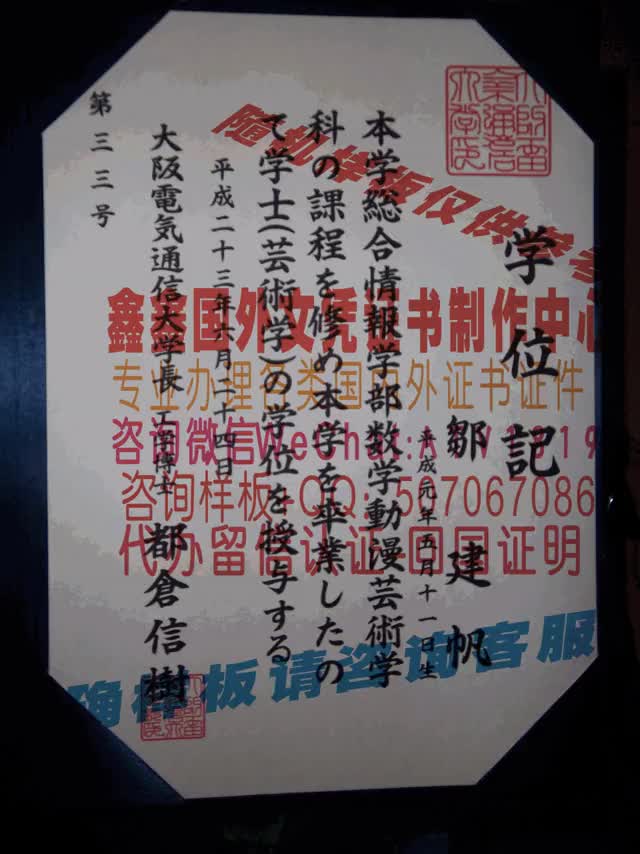 学位記
鄒建帆
平成元年五月十一日生
本学総合情報学部数学動漫芸術学
科の課程を修め本学を卒業したの
で学士(芸術学)の学位を授与する
平成二十三年六月二十四日
大阪電気通信大学長 工学博士 都倉信樹
第三三号
随机样版仅供参考
鑫鑫国外文凭证书制作中心
专业办理各类国内外证书证件
咨询微信WeChat:
咨询样板 QQ:
代办留信认证 回国证明
确样板请咨询客服